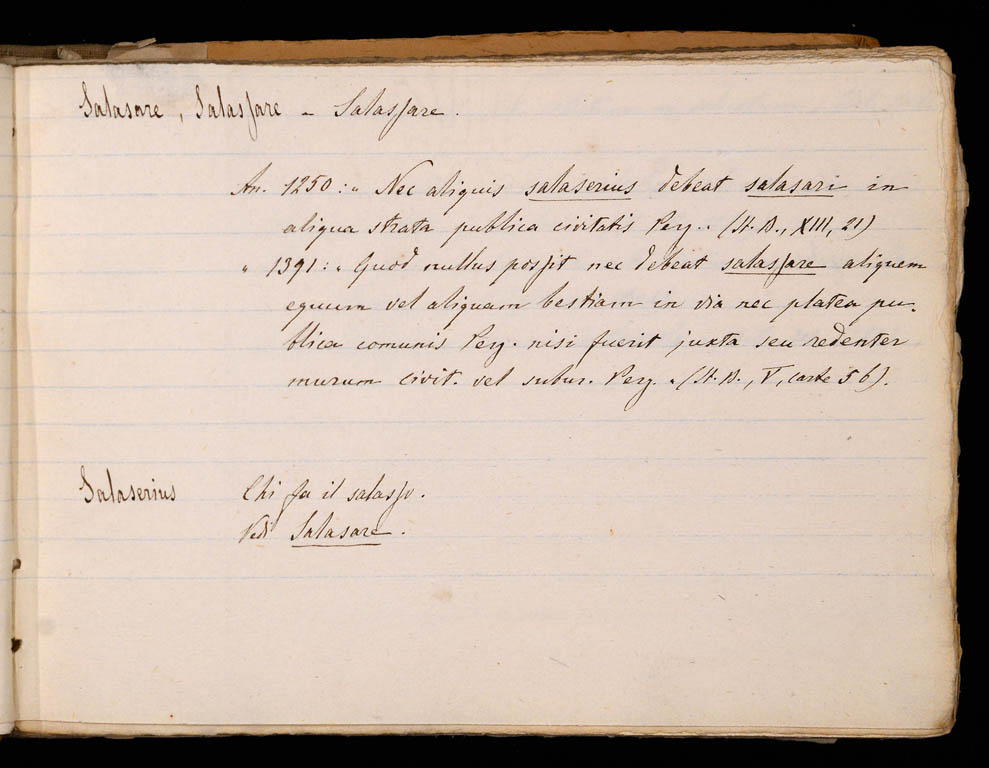 Salasare, Salassare - Salassare.
An. 1250: " Nec aliquis salaserius debeat salasari in
aliqua strata publica civitatis Perg. " (St. D., XIII, 21)
" 1391: " Quod nullus possit nec debeat salassare aliquem
equum vel aliquam bestiam in via nec platea pu-
blica comunis Perg. nisi fuerit juxta seu redenter
murum civit. vel subur. Perg. " (St. D., V, carte 56).
Salaserius Chi fa il salasso.
Vedi Salasare.